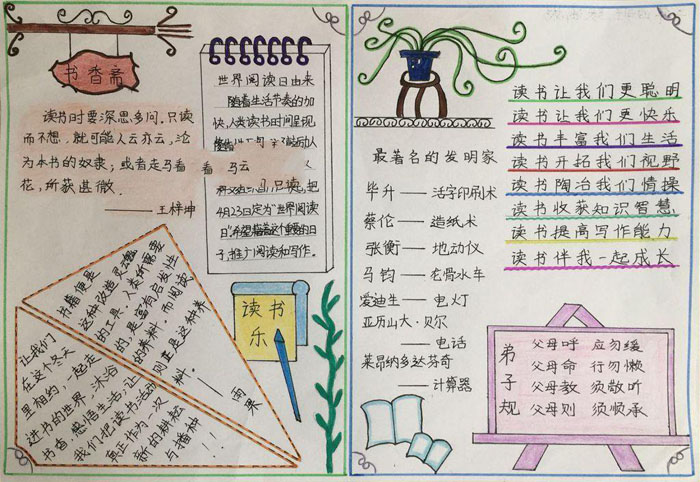 书香斋
读书时要深思多问.只读
而不想,就可能人云亦云,沦
为本书的奴隶,或者走马看 看 马云
花,所获甚微.
——王梓坤
世界阅读日由来
随着生活节奏的加
快,人类读书时间呈现
只读,把
4月23日定为"世界阅读
日"希望藉着这个重要的日
子,推广阅读和写作。
书籍便是
这种改造灵魂
的工具.人类所需要
的,是富有启发性
的养料.而阅读
则正是这种养
料.
——雨果
让我们
在这个冬天
里相约,一起走
进书的世界,沐浴
书香,感悟生活.让
我们把读书活动
真正作为一次
新的耕耘
与播种!!
读书
乐
最著名的发明家
毕升——活字印刷术
蔡伦——造纸术
张衡——地动仪
马钧——龙骨水车
爱迪生——电灯
亚历山大·贝尔
——电话
莱昂纳多达芬奇
——计算器
读书让我们更聪明
读书让我们更快乐
读书丰富我们生活
读书开拓我们视野
读书陶冶我们情操
读书收获知识智慧
读书提高写作能力
读书伴我一起成长
弟子规
父母呼 应勿缓
父母命 行勿懒
父母教 须敬听
父母则 须顺承